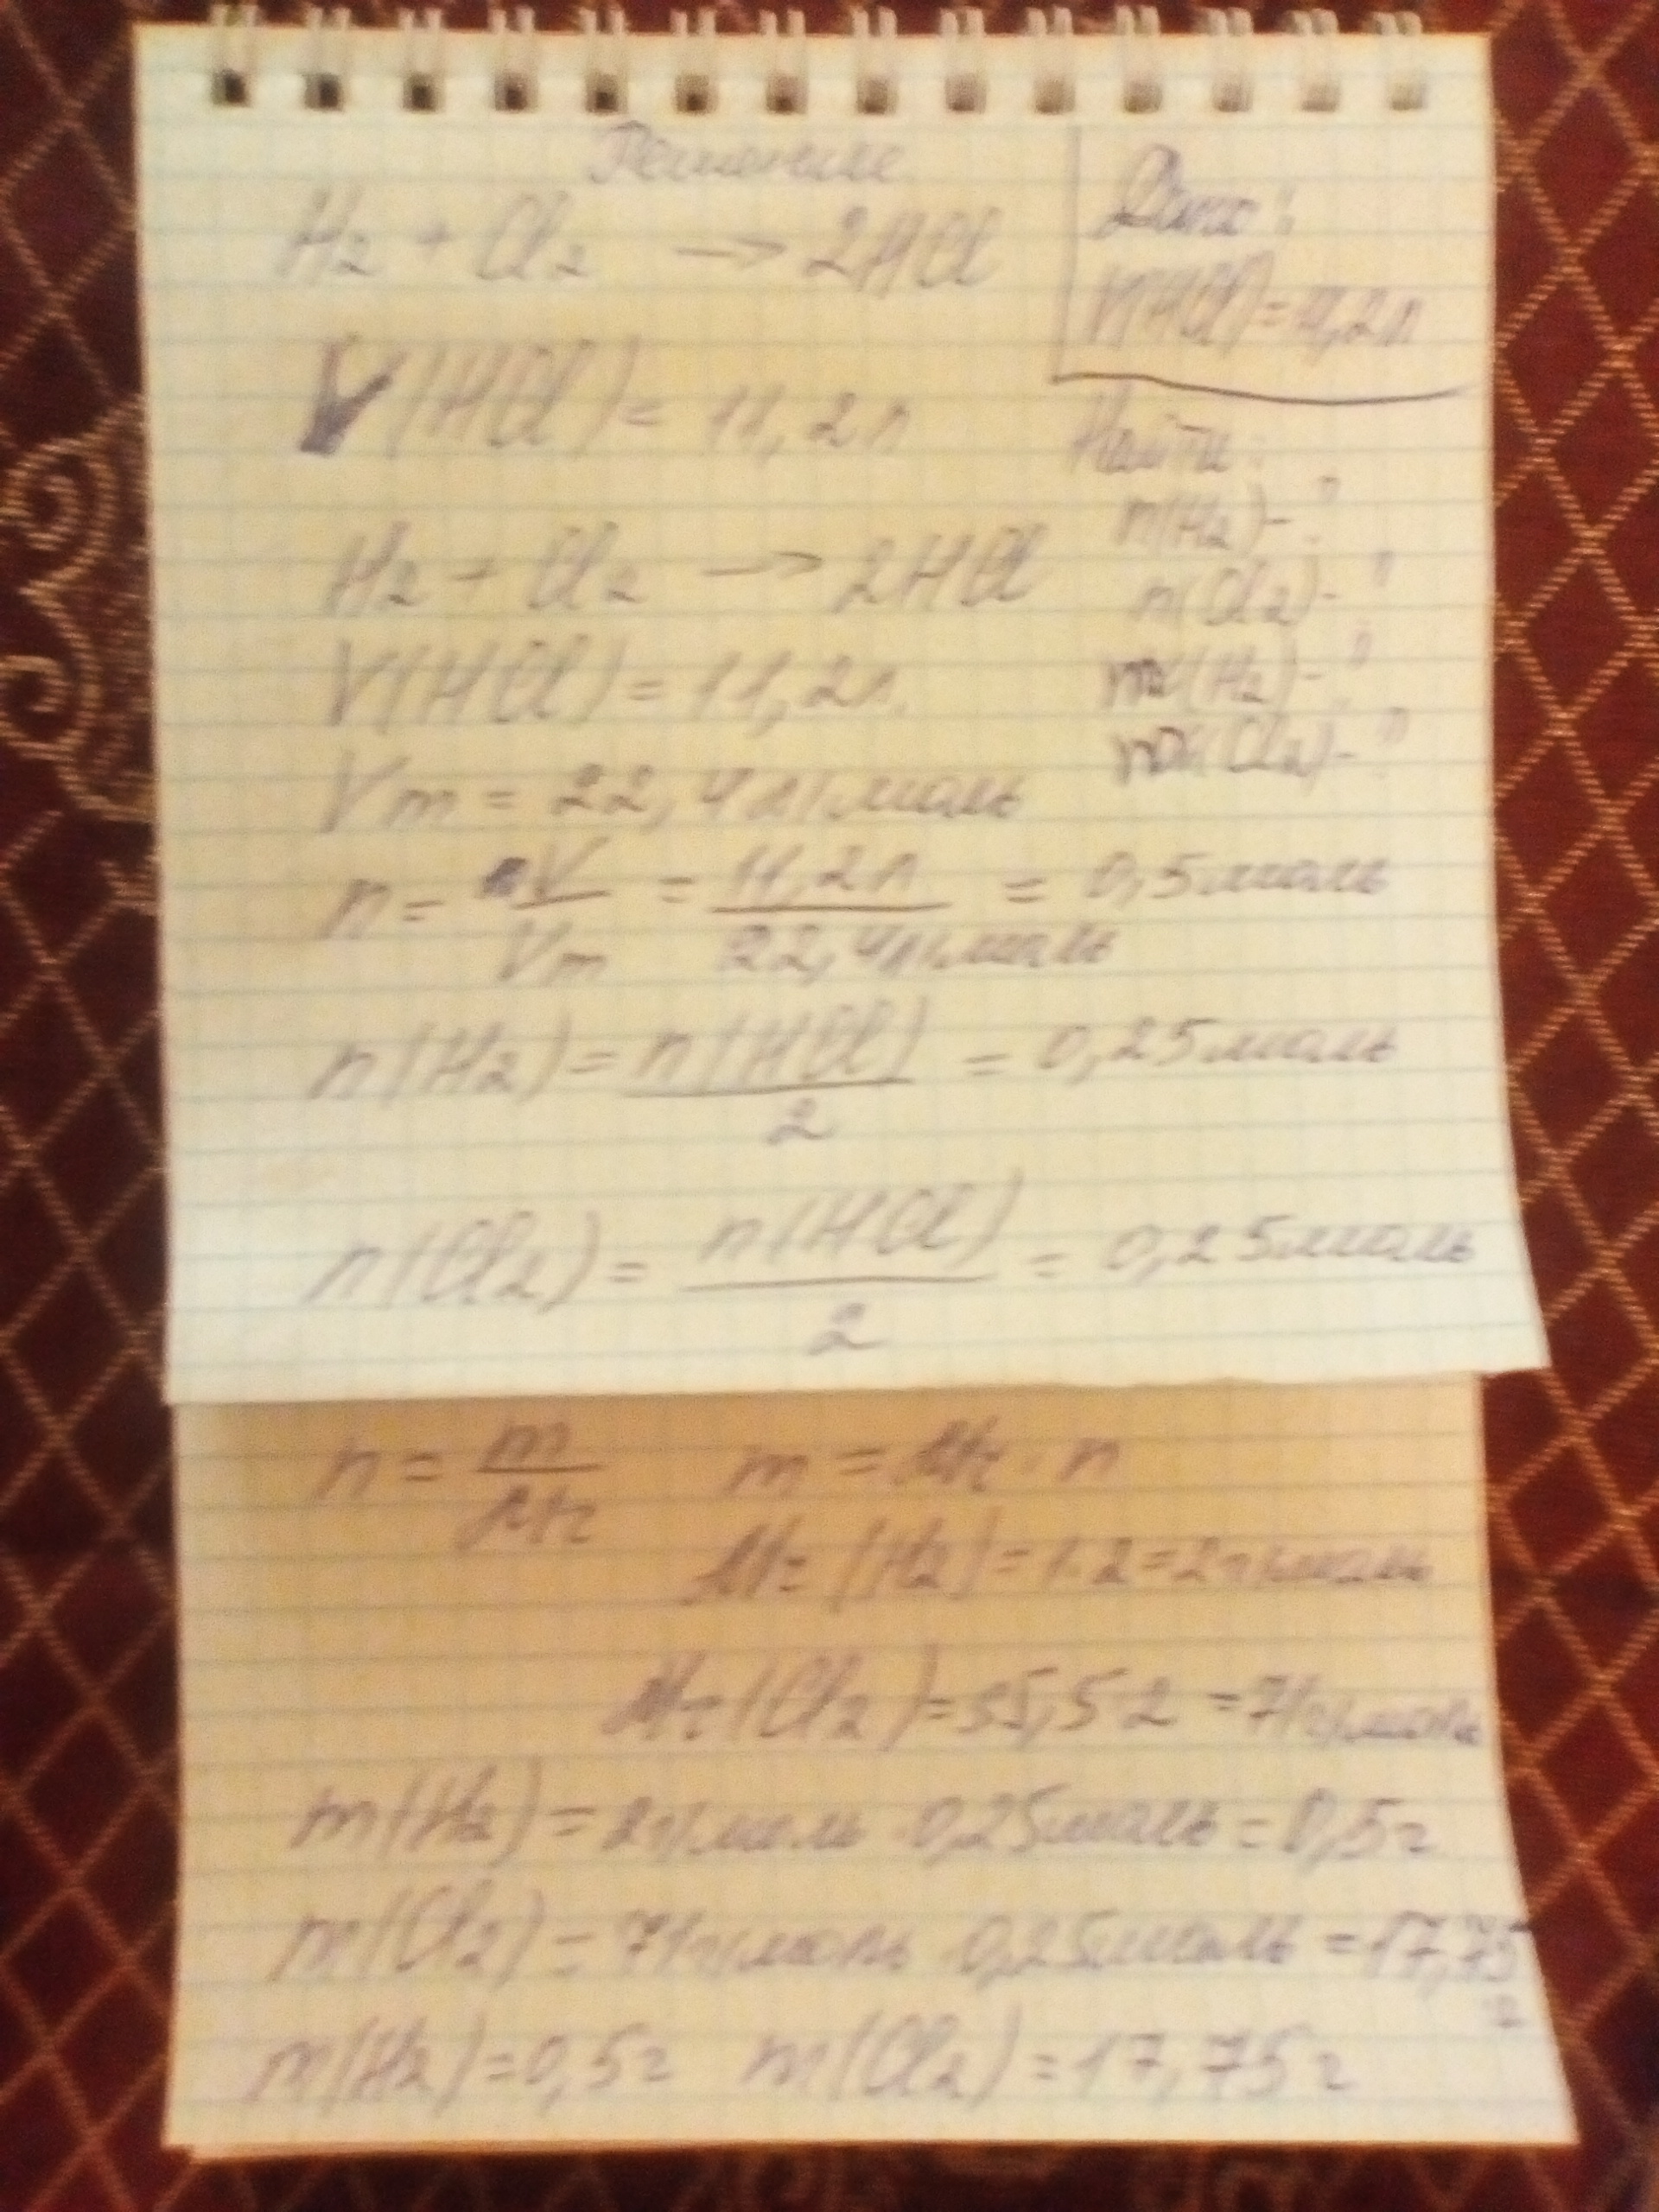 Решение
H₂ + Cl₂ → 2HCl
Дано:
V(HCl) = 11,2л
V(HCl) = 11,2л
Найти:
n(H₂)-?
n(Cl₂)-?
m(H₂)-?
m(Cl₂)-?
H₂ + Cl₂ → 2HCl
V(HCl) = 11,2л.
Vm = 22,4л/моль
n = V/Vm = 11,2л/22,4л/моль = 0,5моль
n(H₂) = n(HCl)/2 = 0,25моль
n(Cl₂) = n(HCl)/2 = 0,25моль
n = m/Mr m = Mr · n
Mr (H₂) = 1·2=2г/моль
Mr(Cl₂)=35,5·2 =71г/моль
m(H₂) = 2г/моль · 0,25моль = 0,5г
m(Cl₂) = 71г/моль · 0,25моль = 17,75г
m(H₂)=0,5г m(Cl₂) = 17,75г